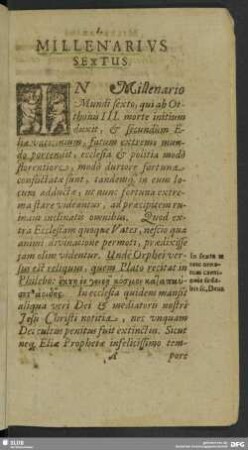 MILLENARIVS
SEXTUS.
IN Millenario
Mundi sexto, qui ab Ot-
thonis III. morte initium
duxit, & secundum E-
liæ vaticinium, fatum extremū mun-
do portendit, ecclesia & politia modò
florentiore, modò duriore fortunâ
conflictatæ sunt, tandemq; in eum lo-
cum adductæ, ut nunc fortuna extre-
ma stare videantur, ad præcipitem
ruinam inclinatis omnibus. Quod ex-
tra Ecclesiam quoque Vates, nescio quâ
animi divinatione permoti, prædixisse
jam olim videntur. Unde Orphei ver-
sus est reliquus, quem Plato recitat in
Philebo:
In ecclesia quidem mansit
aliqua veri Dei & mediatoris nostri
Jesu Christi notitia, nec unquam
Dei cultus penitus fuit extinctus. Sicut
neq; Eliæ Prophetæ infelicissimo tem-
A pore
In sexta
SLUB